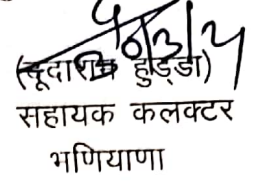 (दूदाराम हुड्डा)
सहायक कलक्टर
भणियाणा